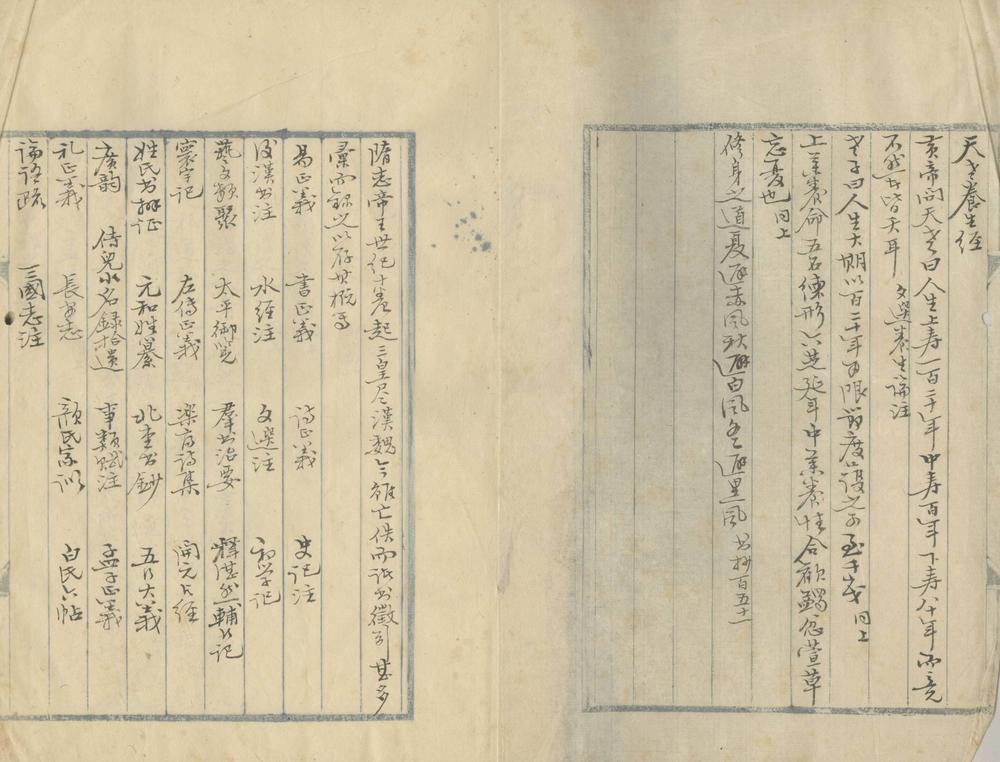 天老養生經
黃帝問天老曰人生上寿一百二十年中寿百年下寿八十年而竟
不然者皆夭耳 文選養生論注
老子曰人生大期以百二十年为限節度護之可至千歲 同上
上薬養命五石練形六芝延年中薬養性合歡蠲忿萱草
忘憂也 同上
修身之道夏避赤風秋避白風冬避黑風 书抄百五十一
隋志帝王世紀十卷起三皇尽漢魏今雖亡佚而诸书徵引甚多
彙而錄之以存其概焉
易正義 書正義 诗正義 史记注
後漢书注 水經注 文選注 初学记
藝文類聚 太平御览 羣书治要 釋湛然輔行记
寰宇记 左傳正義 樂府诗集 開元占經
姓氏书辨证 元和姓纂 北堂书鈔 五行大義
廣韵 侍兒小名録拾遺 事類赋注 孟子正義
礼正義 長安志 顏氏家训 白氏六帖
論语疏 三國志注